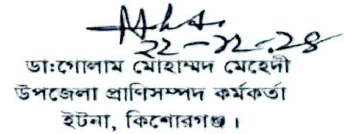 ২২-১২-২৪
ডা:গোলাম মোহাম্মদ মেহেদী
উপজেলা প্রাণিসম্পদ কর্মকর্তা
ইটনা, কিশোরগঞ্জ।